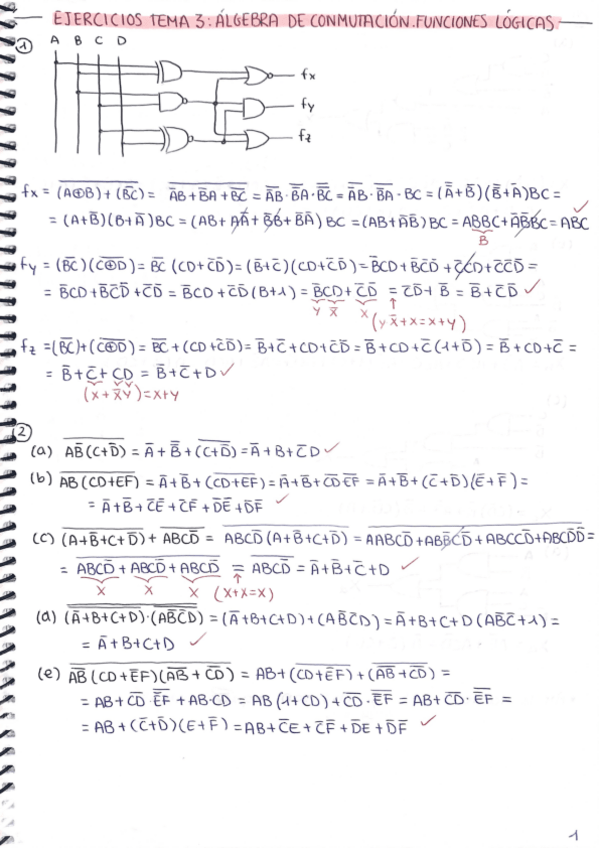 EJERCICIOS TEMA 3: ÁLGEBRA DE CONMUTACIÓN. FUNCIONES LÓGICAS
① A B C D
fx
fy
fz
fx = \overline{(A⊕B)+(\overline{BC})} = \overline{A\overline{B}+\overline{B}A+\overline{BC}} = \overline{A\overline{B}}·\overline{\overline{B}A}·\overline{\overline{BC}} = \overline{A\overline{B}}·\overline{\overline{B}A}·BC = (\overline{A}+\overline{\overline{B}})(\overline{\overline{B}}+\overline{A})BC =
= (A+B̄)(B+Ā)BC = (AB+AĀ+B̄B+B̄Ā) BC = (AB+ĀB̄) BC = ABBC+ĀB̄BC = ABC ✓
B
fy = (\overline{BC})(\overline{C⊕D}) = \overline{BC} (CD+C̄D̄) = (B̄+C̄)(CD+C̄D̄) = B̄CD+B̄C̄D̄+C̄CD+C̄C̄D̄ =
= B̄CD+B̄C̄D̄+C̄D̄ = B̄CD+C̄D̄(B+1) = B̄CD+C̄D̄ = C̄D̄+B̄ = B̄+C̄D̄ ✓
y x̄ x (yx̄+x=x+y)
fz = (\overline{BC})+(\overline{C⊕D}) = \overline{BC}+(CD+C̄D̄) = B̄+C̄+CD+C̄D̄ = B̄+CD+C̄(1+D̄) = B̄+CD+C̄ =
= B̄+C̄+CD = B̄+C̄+D ✓
(x+x̄y)=x+y
②
(a) \overline{AB̄(C+D̄)} = Ā+\overline{B̄}+(\overline{C+D̄}) = Ā+B+C̄D ✓
(b) \overline{AB(CD+EF)} = Ā+B̄+(\overline{CD+EF}) = Ā+B̄+\overline{CD}\overline{EF} = Ā+B̄+(C̄+D̄)(Ē+F̄) =
= Ā+B̄+C̄Ē+C̄F̄+D̄Ē+D̄F̄ ✓
(c) \overline{(A+B̄+C+D̄)}+\overline{ABCD̄} = \overline{ABCD̄(A+B̄+C+D̄)} = \overline{AABCD̄+ABB̄CD̄+ABCCD̄+ABCD̄D̄} =
= \overline{ABCD̄+ABCD̄+ABCD̄} = \overline{ABCD̄} = Ā+B̄+C̄+D ✓
x x x (x+x=x)
(d) \overline{\overline{(Ā+B+C+D)}·\overline{(AB̄C̄D)}} = (Ā+B+C+D)+(AB̄C̄D) = Ā+B+C+D(AB̄C̄+1) =
= Ā+B+C+D ✓
(e) \overline{\overline{AB}(CD+ĒF)(\overline{AB}+\overline{CD})} = AB+(\overline{CD+ĒF})+(\overline{\overline{AB}+\overline{CD}}) =
= AB+\overline{CD}·\overline{ĒF}+AB·CD = AB(1+CD)+\overline{CD}·\overline{ĒF} = AB+\overline{CD}·\overline{ĒF} =
= AB+(C̄+D̄)(E+F̄) = AB+C̄E+C̄F̄+D̄E+D̄F̄ ✓
1